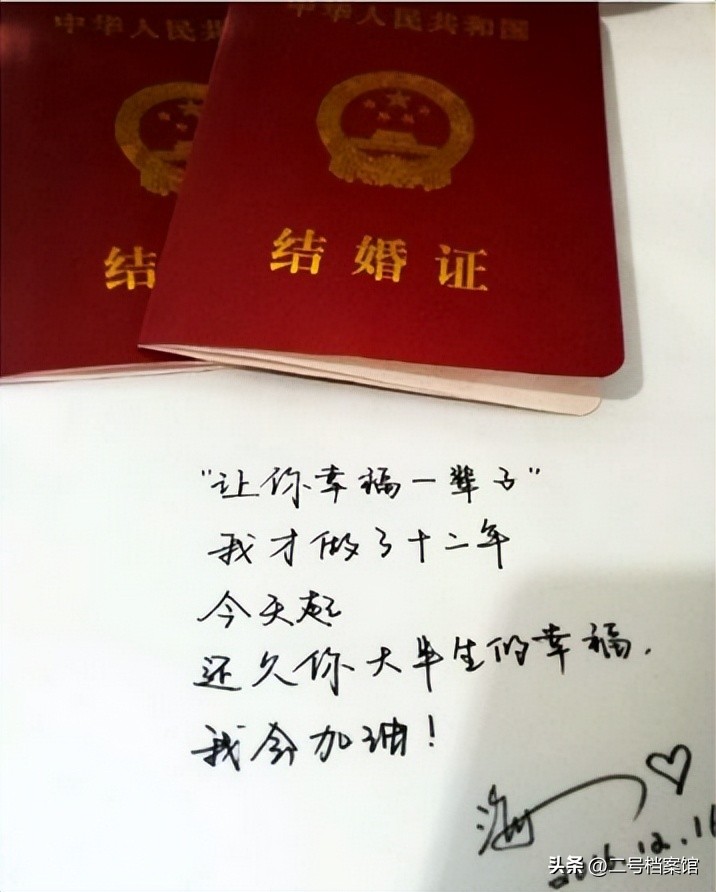 中华人民共
中华人民共和国
结
结婚证
"让你幸福一辈子"
我才做了十二年
今天起
还久你大半生的幸福.
我会加油!
海
12.16
头条 @二号档案馆